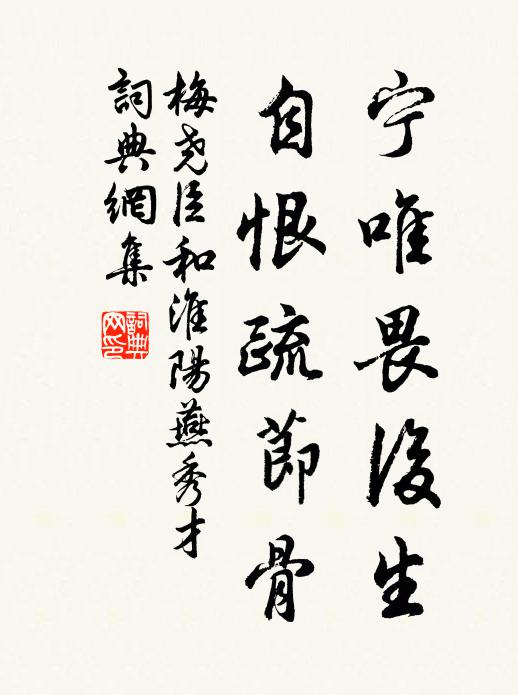 宁唯畏後生
自恨疏節骨
梅尧臣和淮陽燕秀才
詞典網集
詞典
网印